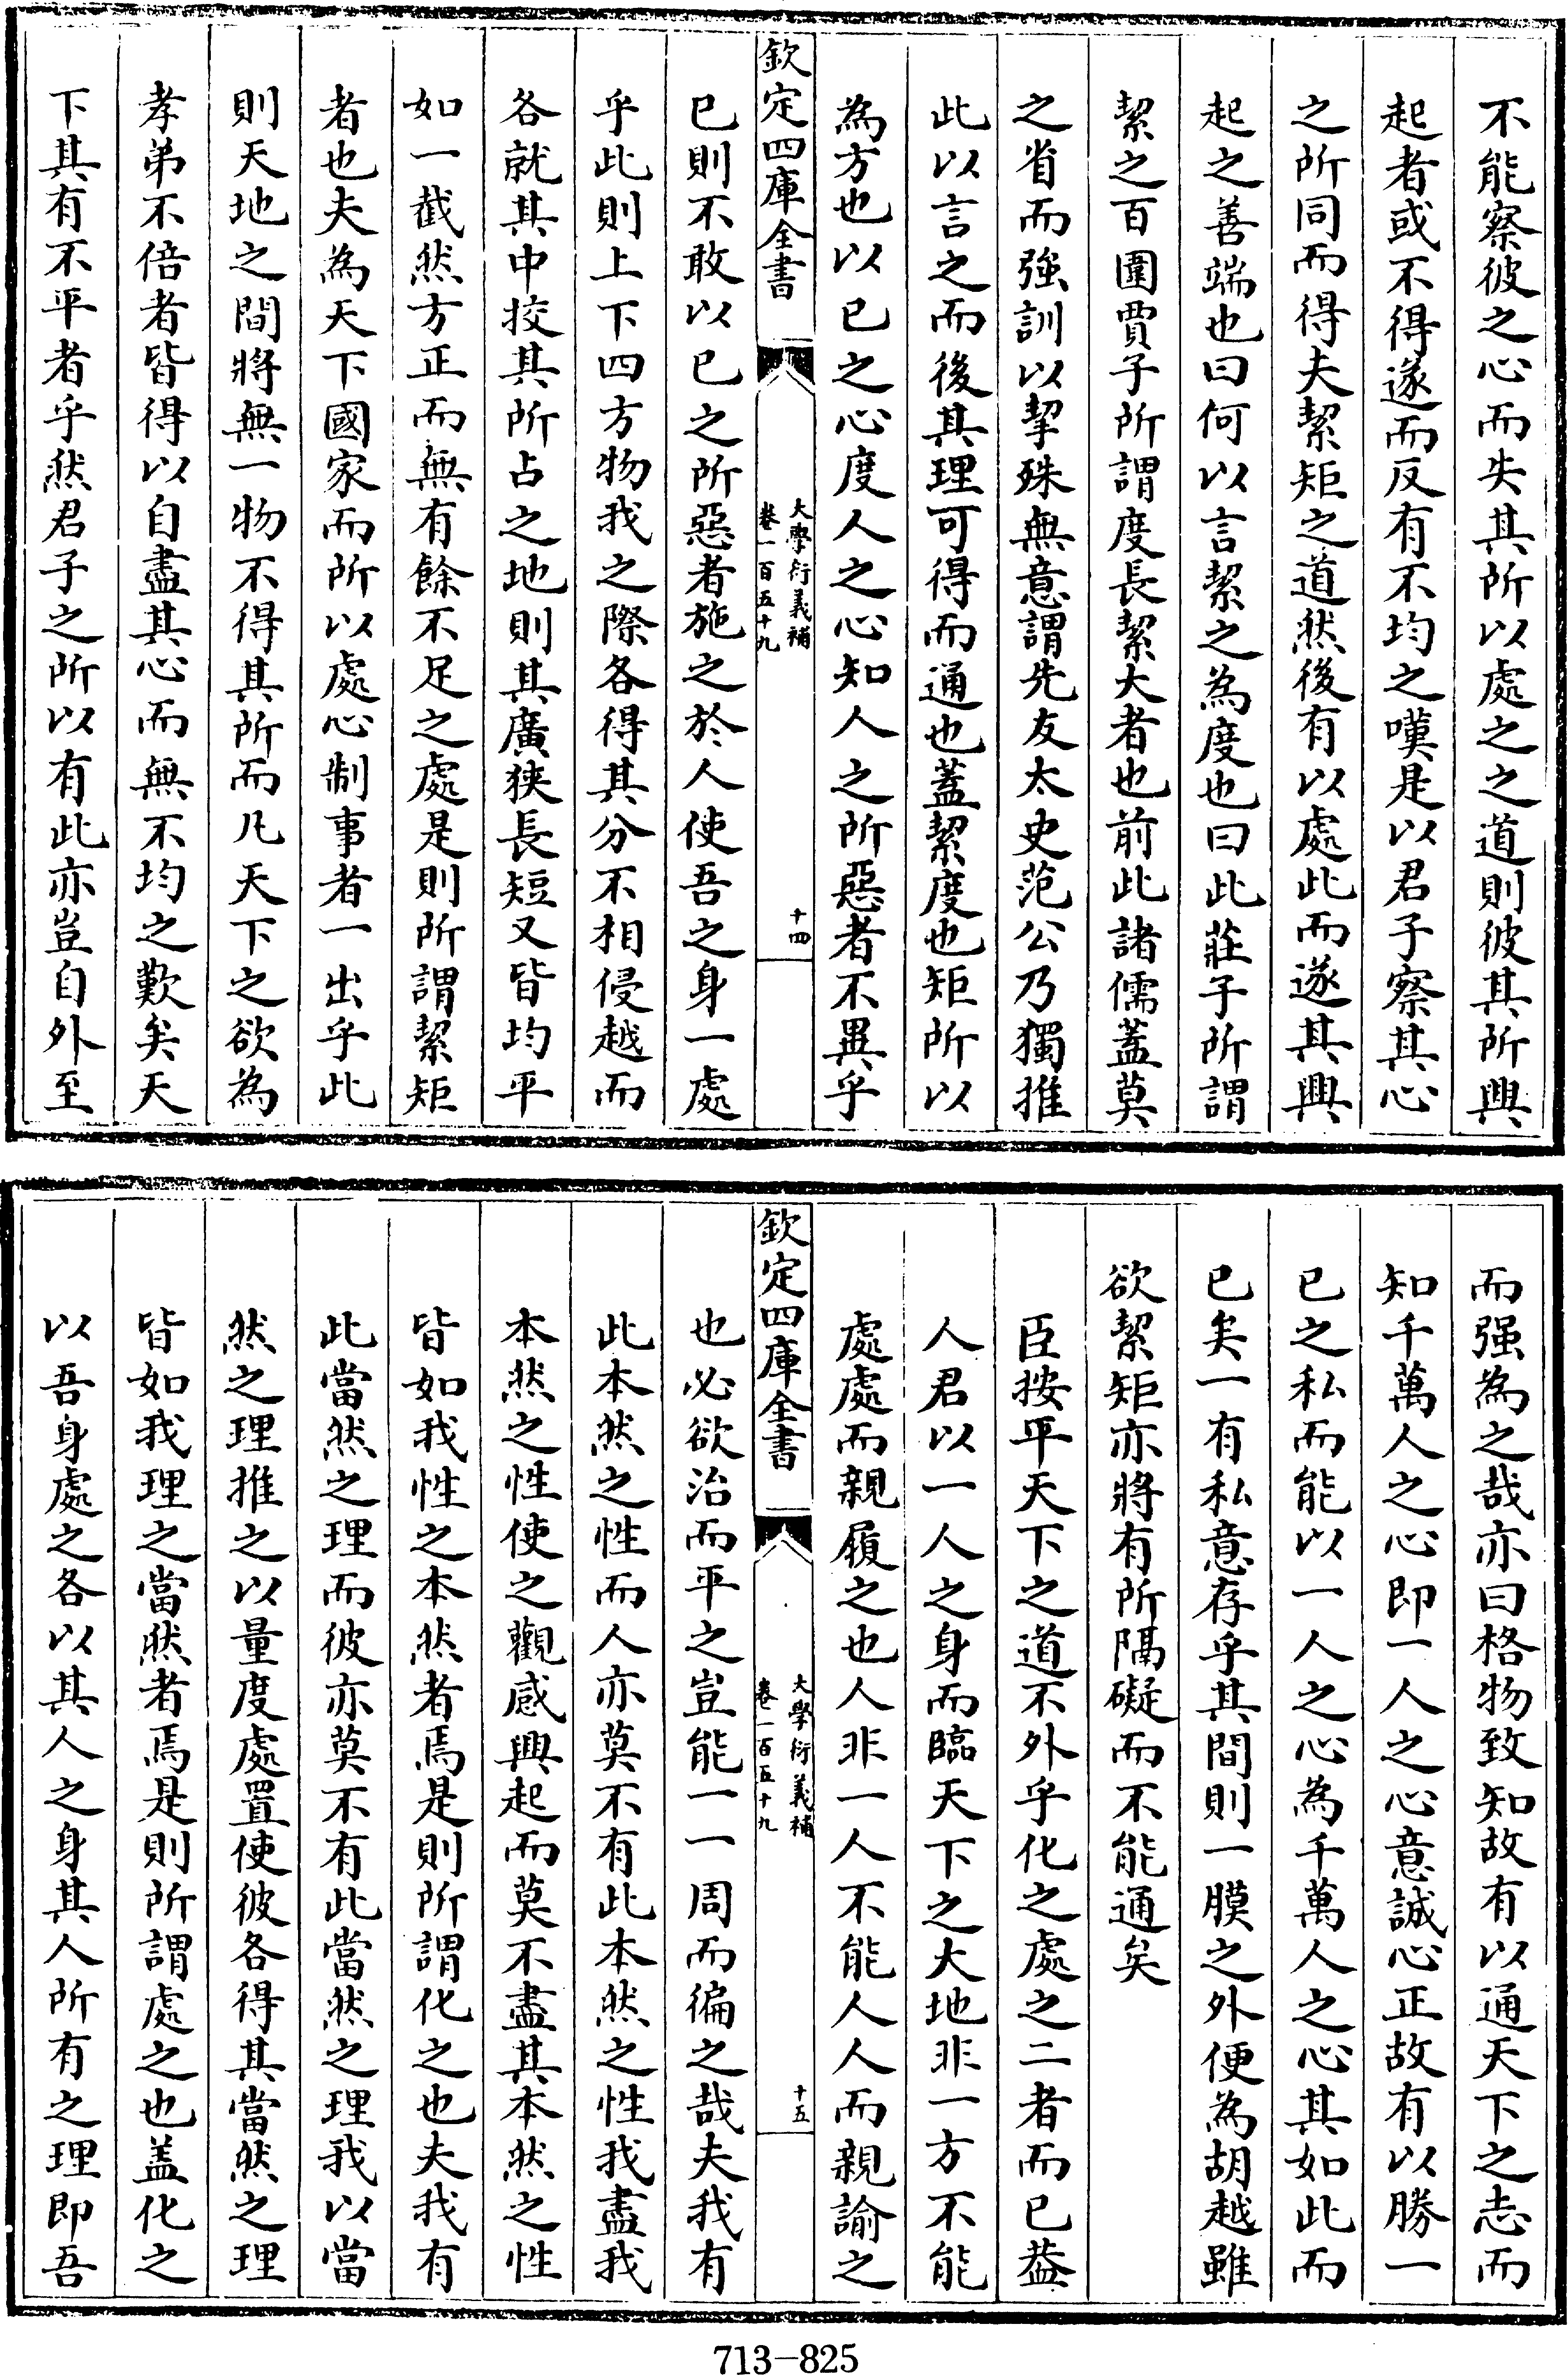 不能察彼之心而失其所以處之之道則彼其所興
起者或不得遂而反有不均之嘆是以君子察其心
之所同而得夫絜矩之道然後有以處此而遂其興
起之善端也曰何以言絜之為度也曰此莊子所謂
絜之百圍賈子所謂度長絜大者也前此諸儒蓋莫
之省而強訓以挈殊無意謂先友太史范公乃獨推
此以言之而後其理可得而通也蓋絜度也矩所以
為方也以已之心度人之心知人之所惡者不異乎
欽定四庫全書
大學衍義補
卷一百五十九
十四
已則不敢以已之所惡者施之於人使吾之身一處
乎此則上下四方物我之際各得其分不相侵越而
各就其中挍其所占之地則其廣狹長短又皆均平
如一截然方正而無有餘不足之處是則所謂絜矩
者也夫為天下國家而所以處心制事者一出乎此
則天地之間將無一物不得其所而凡天下之欲為
孝弟不倍者皆得以自盡其心而無不均之歎矣天
下其有不平者乎然君子之所以有此亦豈自外至
而强為之哉亦曰格物致知故有以通天下之志而
知千萬人之心即一人之心意誠心正故有以勝一
已之私而能以一人之心為千萬人之心其如此而
已矣一有私意存乎其間則一膜之外便為胡越雖
欲絜矩亦將有所隔礙而不能通矣
臣按平天下之道不外乎化之處之二者而已葢
人君以一人之身而臨天下之大地非一方不能
處處而親履之也人非一人不能人人而親諭之
欽定四庫全書
大學衍義補
卷一百五十九
十五
也必欲治而平之豈能一一周而徧之哉夫我有
此本然之性而人亦莫不有此本然之性我盡我
本然之性使之觀感興起而莫不盡其本然之性
皆如我性之本然者焉是則所謂化之也夫我有
此當然之理而彼亦莫不有此當然之理我以當
然之理推之以量度處置使彼各得其當然之理
皆如我理之當然者焉是則所謂處之也盖化之
以吾身處之各以其人之身其人所有之理即吾
713-825